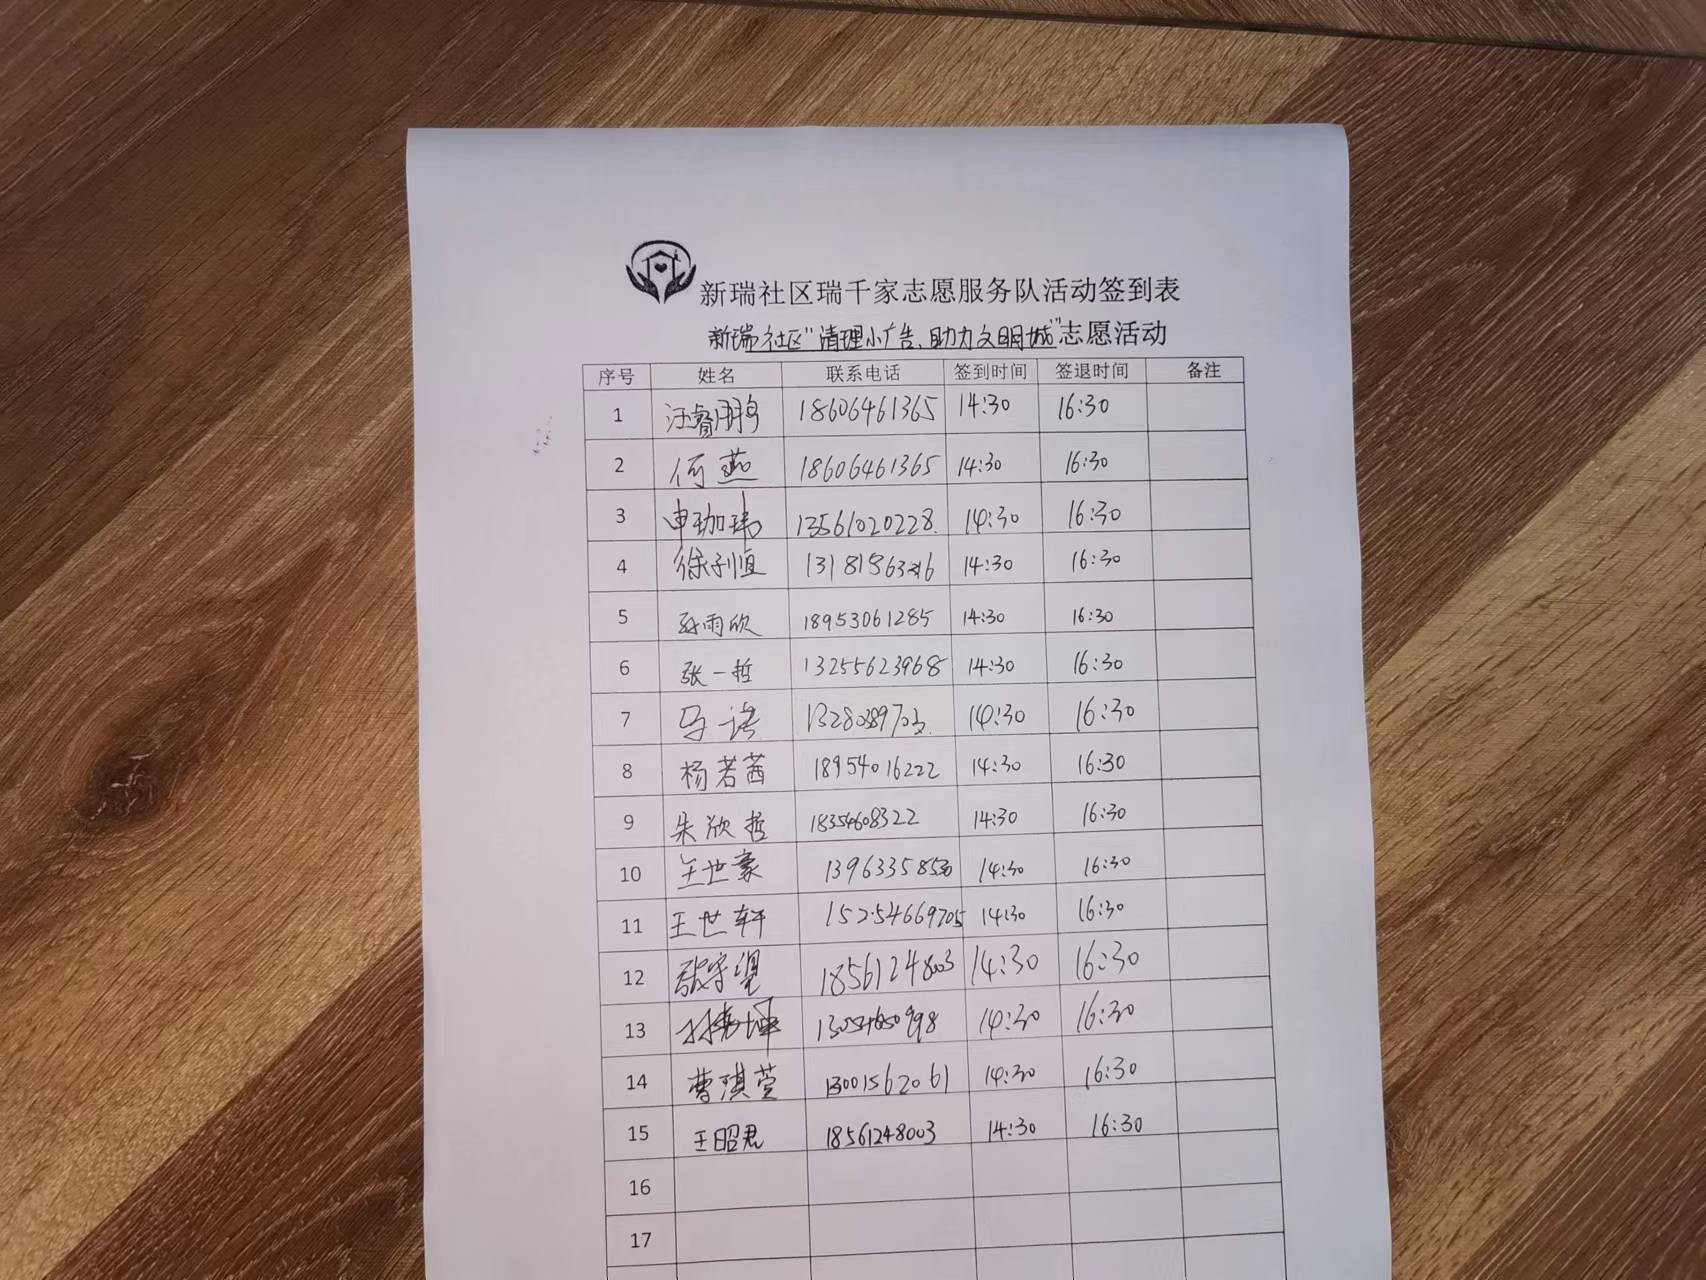 新瑞社区瑞千家志愿服务队活动签到表
新瑞社区"清理小广告、助力文明城"志愿活动
序号 姓名 联系电话 签到时间 签退时间 备注
1 汪睿鹏 18606461365 14:30 16:30
2 何燕 18606461365 14:30 16:30
3 申珈瑞 13561020228 14:30 16:30
4 徐子恒 14:30 16:30
5 孙雨欣 18953061285 14:30 16:30
6 张一哲 13255623968 14:30 16:30
7 马诺 14:30 16:30
8 杨若茜 18954016222 14:30 16:30
9 朱欣哲 18354608322 14:30 16:30
10 王世豪 14:30 16:30
11 王世轩 15254669705 14:30 16:30
12 18561248003 14:30 16:30
13 13054650998 14:30 16:30
14 曹琪萱 13001562061 14:30 16:30
15 王昭君 18561248003 14:30 16:30
16
17